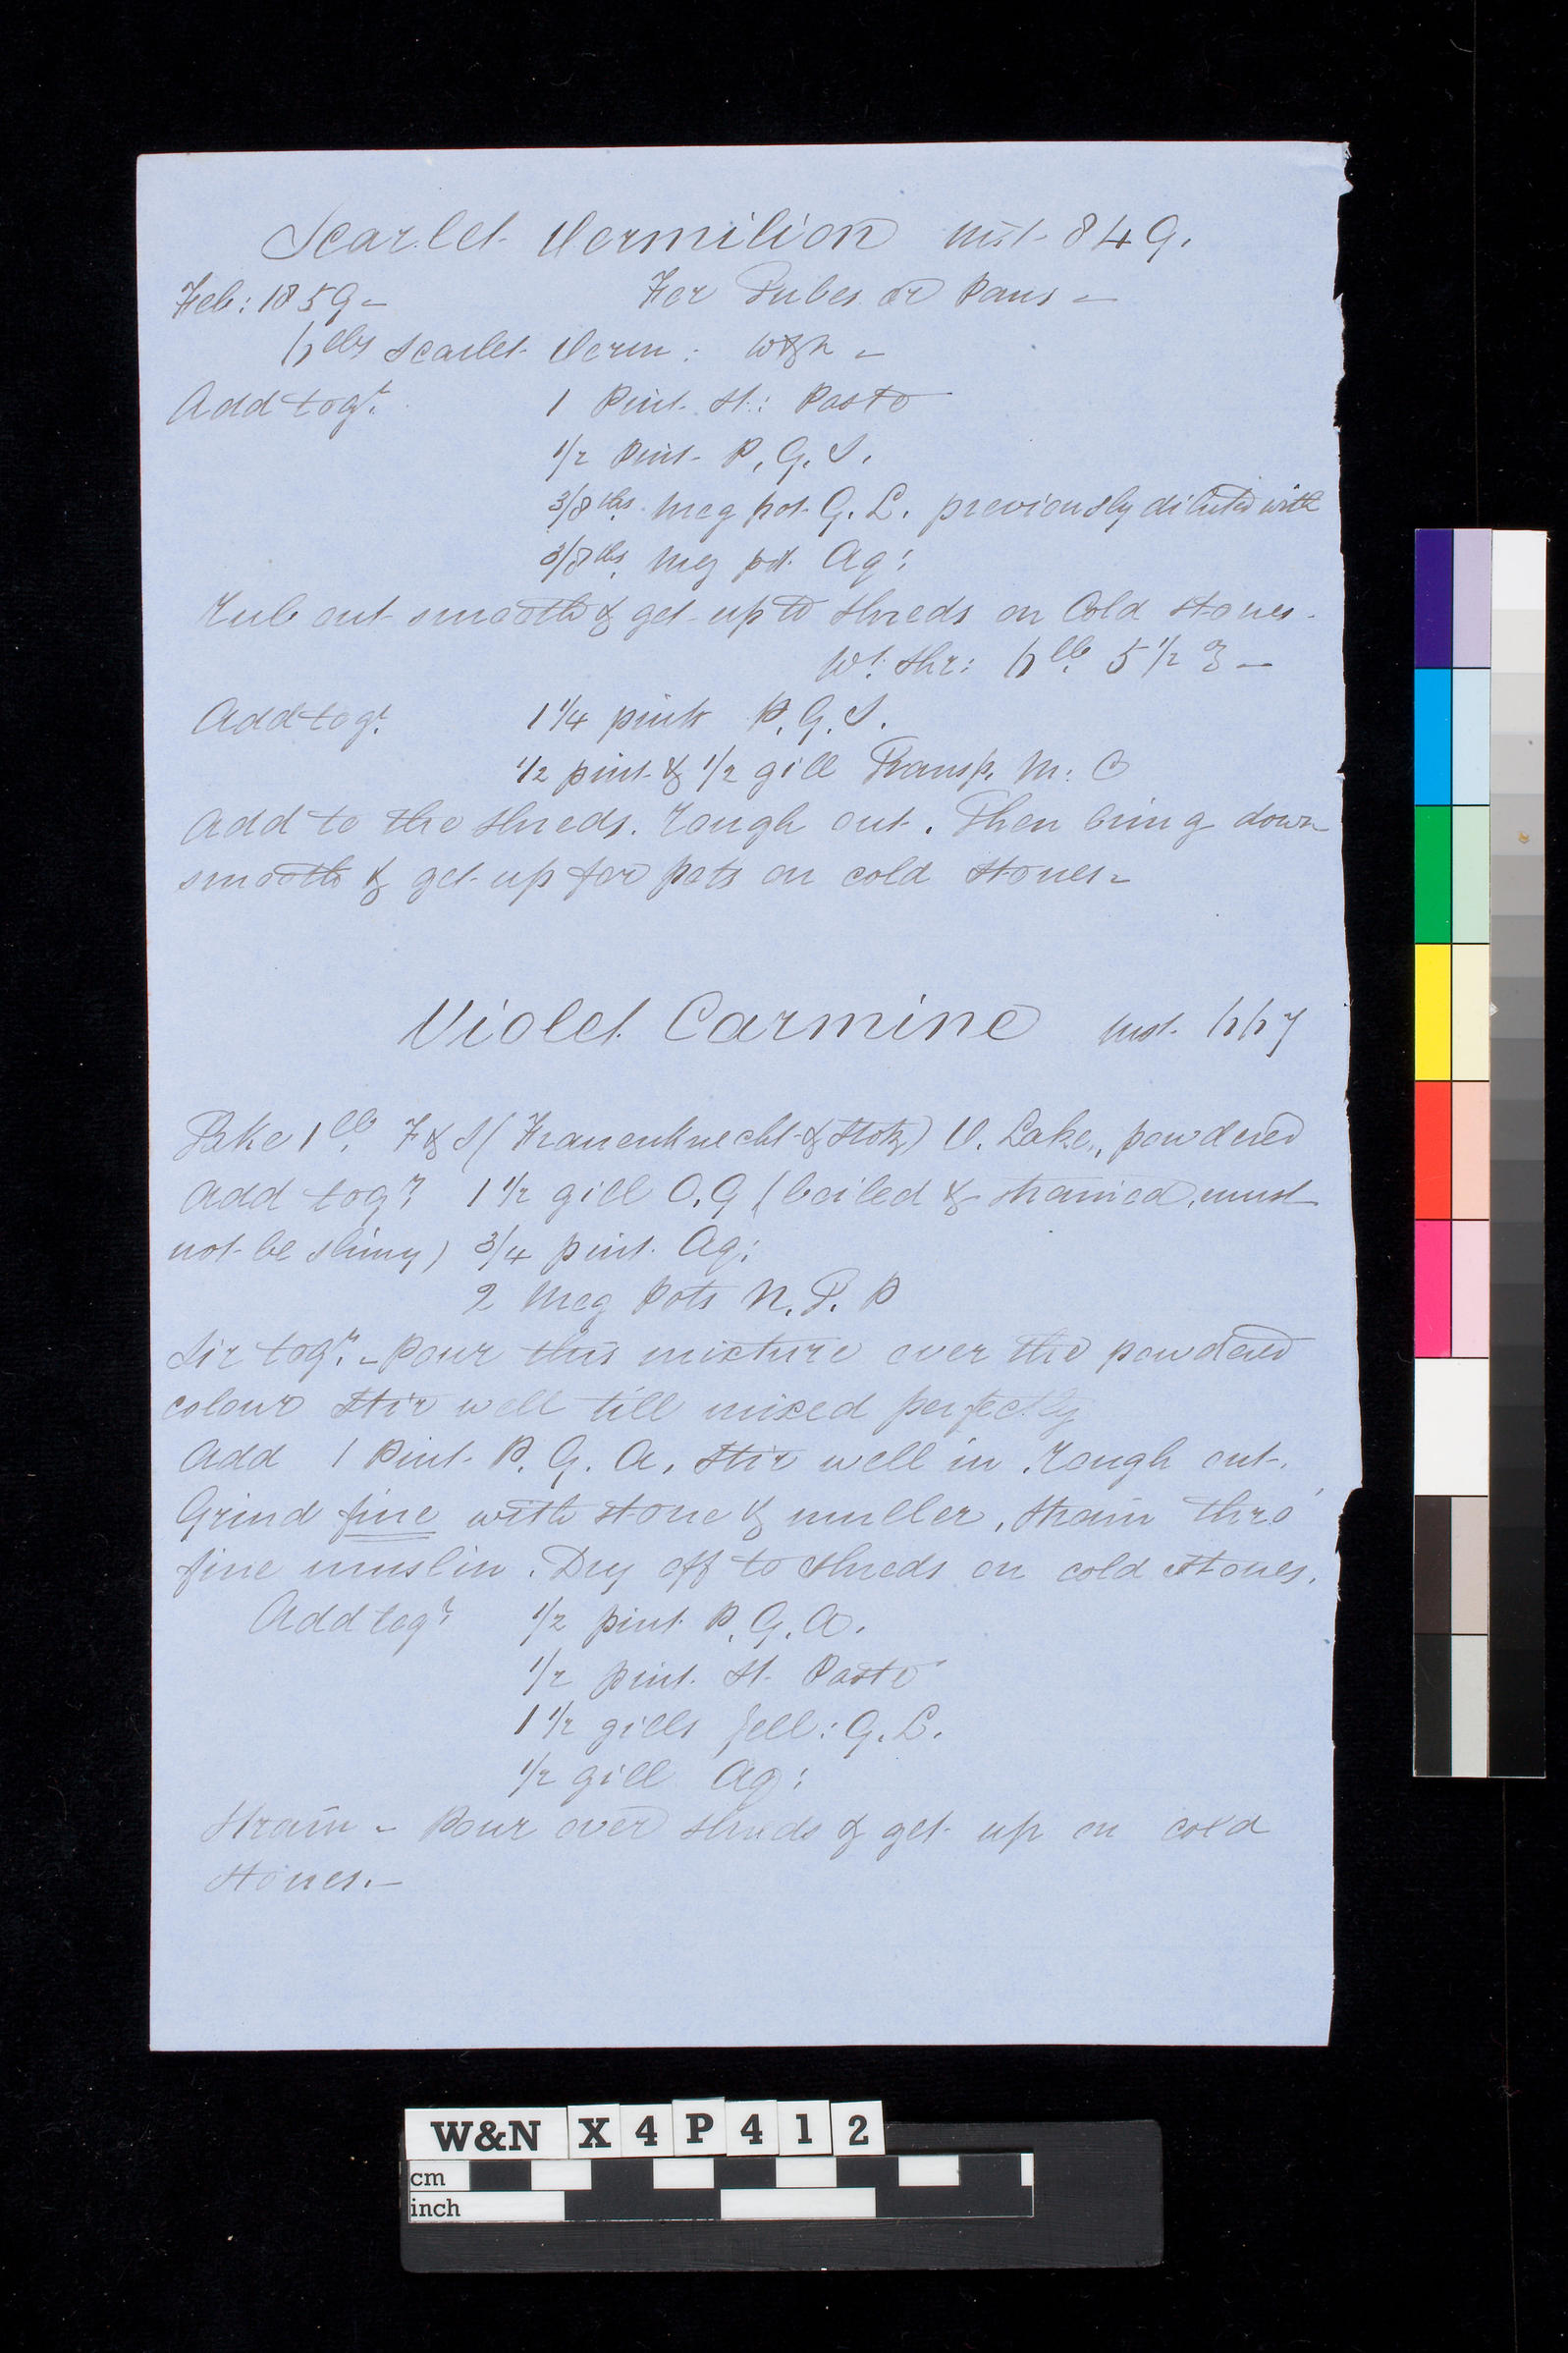 Scarlet Vermilion Mst. 849.
Feb: 1859 - For Tubes or Pans -
6 lbs Scarlet Verm: W&N -
Add togr. 1 Pint St: Paste
1/2 Pint P. G. S.
3/8ths Meg pot G. L. previously diluted with
3/8ths Meg pot Aq:
Rub out smooth & get up to shreds on Cold Stones.
Wt. Shr: 6 lb 5 1/2 ℥ -
Add togr. 1 1/4 pints P. G. S.
1/2 pint & 1/2 gill Transp. M: C
Add to the shreds. Rough out. Then bring down
smooth & get up for pots on cold Stones -
Violet Carmine Mst. 667
Take 1 lb. F & S (Frauenknecht & Stotz) V. Lake, powdered
Add togr. 1 1/2 gill O. G (boiled & strained, must
not be slimy) 3/4 pint Aq:
2 Meg Pots N. P. P
Sir togr. - Pour this mixture over the powdered
colour Stir well till mixed perfectly
Add 1 Pint P. G. A. Stir well in. Rough out.
Grind fine with stone & muller, Strain thro'
fine muslin. Dry off to shreds on cold stones.
Add togr. 1/2 pint P. G. A.
1/2 pint St. Paste
1 1/2 gills Jell: G. L.
1/2 gill Aq:
Strain - Pour over shreds & get up on cold
Stones. -
W&N X 4 P 4 1 2
cm
inch